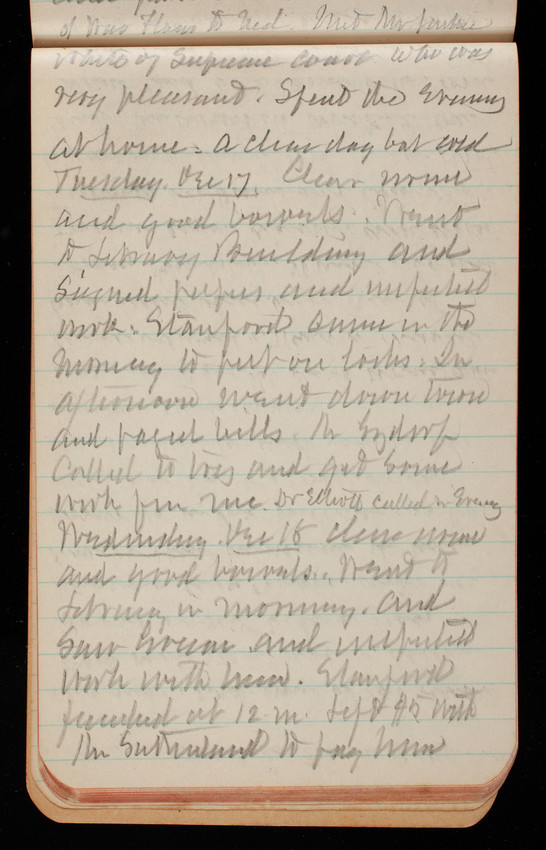 of War
to
Met Mr Justice
White of Supreme court who was
very pleasant. Spent the Evening
at home. A clear day but cold
Tuesday Dec 17. Clear
and good bowels. Went
to Library Building and
signed papers and inspected
work. Stanford came in the
morning to put on locks. In
afternoon went down town
and payed bills. Mr
called to
and get some
work for me. Dr Elliott called in Evening
Wednesday Dec 18 clear
and good bowels. Went to
Library in morning. and
Saw Green and inspected
work with him. Stanford
finished at 12 m. Left $5 with
Mr Sutherland to pay him